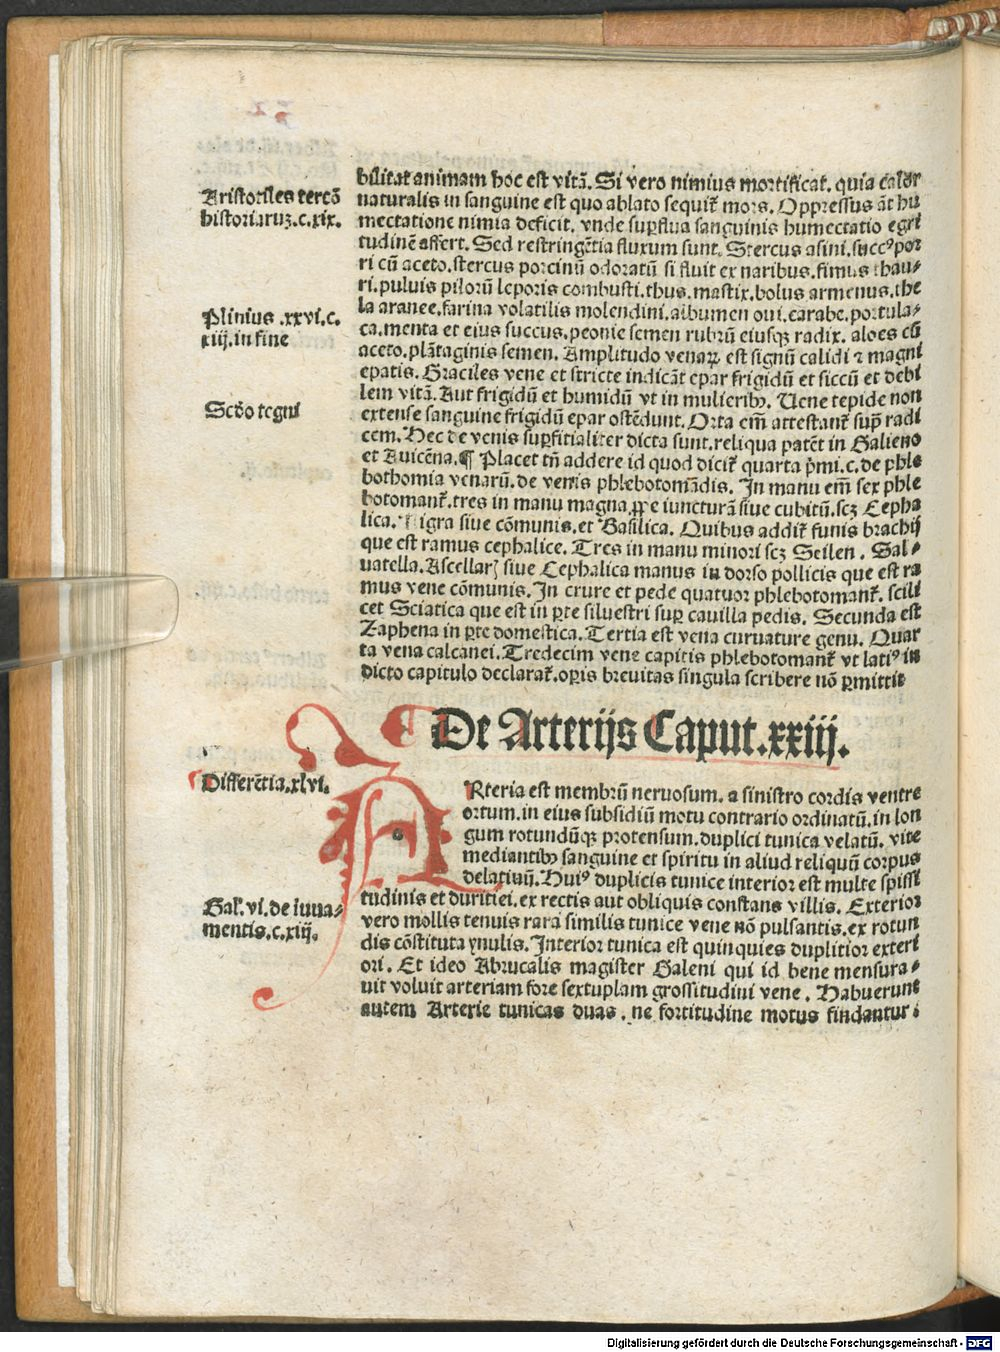 bilitat animam hoc est vitā. Si vero nimius mortificat. quia calor
naturalis in sanguine est quo ablato sequit̄ mors. Oppressus āt hu
mectatione nimia deficit. vnde suꝑflua sanguinis humectatio egri
tudinē affert. Sed restringētia fluxum sunt. Stercus asini. succꝰ por
ri cū aceto. stercus porcinū odoratū si fluit ex naribus. fimus thau-
ri. puluis pilorū leporis combusti. thus. mastix. bolus armenus. the
la aranee. farina volatilis molendini. albumen oui. carabe. portula-
ca. menta et eius succus. peonie semen rubrū eiusqꝫ radix. aloes cū
aceto. plātaginis semen. Amplitudo venaꝝ est signū calidi ⁊ magni
epatis. Graciles vene et stricte indicāt epar frigidū et siccū et debi
lem vitā. Aut frigidū et humidū vt in mulieribꝫ. Uene tepide non
extense sanguine frigidū epar ostēdunt. Orta em̄ attestant̄ suꝑ radi
cem. Hec de venis suꝑfitialiter dicta sunt. reliqua patēt in Galieno
et Auicēna. ¶ Placet tn̄ addere id quod dicit̄ quarta p̄mi. c. de phle
bothomia venarū. de venis phlebotomādis. In manu em̄ sex phle
botomant̄. tres in manu magna ꝓpe iuncturā siue cubitū. scꝫ Cepha
lica. Nigra siue cōmunis. et Basilica. Quibus addit̄ funis brachij
que est ramus cephalice. Tres in manu minori scꝫ Seilen. Sal-
uatella. Ascellarꝫ siue Cephalica manus in dorso pollicis que est ra
mus vene cōmunis. In crure et pede quatuor phlebotomant̄. scili
cet Sciatica que est in ꝑte siluestri suꝑ cauilla pedis. Secunda est
Zaphena in ꝑte domestica. Tertia est vena curuature genu. Quar
ta vena calcanei. Tredecim vene capitis phlebotomant̄ vt latiꝰ in
dicto capitulo declarat̄. oꝑis breuitas singula scribere nō ꝑmittit
Aristotiles tercō
historiaruꝫ. c. xix.
Plinius .xxvi. c.
xiij. in fine
Scdo tegni
De Arterijs Caput. xxiij.
Differētia. xlvi.
ARteria est membrū neruosum. a sinistro cordis ventre
ortum. in eius subsidiū motu contrario ordinatū. in lon
gum rotundūqꝫ protensum. duplici tunica velatū. vite
mediantibꝫ sanguine et spiritu in aliud reliquū corpus
delatiuū. Huiꝰ duplicis tunice interior est multe spissi
tudinis et duritiei. ex rectis aut obliquis constans villis. Exterior
vero mollis tenuis rara similis tunice vene nō pulsantis. ex rotun
dis cōstituta ynulis. Interior tunica est quinquies duplitior exteri
ori. Et ideo Abrucalis magister Galeni qui id bene mensura-
uit voluit arteriam fore sextuplam grossitudini vene. Habuerunt
autem Arterie tunicas duas. ne fortitudine motus findantur:
Gal. vi. de iuua-
mentis. c. xiij.
Digitalisierung gefördert durch die Deutsche Forschungsgemeinschaft - DFG